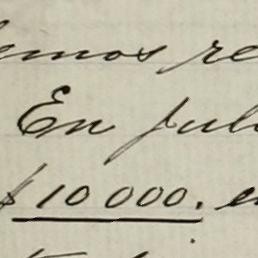 emos re
En Jul
$10000. e